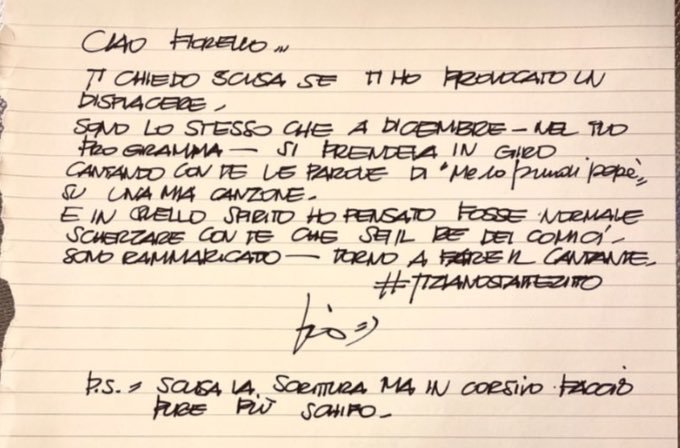 CIAO FIORELLO...
TI CHIEDO SCUSA SE TI HO PROVOCATO UN
DISPIACERE.
SONO LO STESSO CHE A DICEMBRE - NEL TUO
PROGRAMMA - SI PRENDEVA IN GIRO
CANTANDO CON TE LE PAROLE DI "Me lo prendi papè"
SU UNA MIA CANZONE.
E IN QUELLO SPIRITO HO PENSATO FOSSE NORMALE
SCHERZARE CON TE CHE SEI IL RE DEI COMICI.
SONO RAMMARICATO - TORNO A FARE IL CANTANTE.
#TIZIANOSTATTEZITTO
tiz=)
P.S. = SCUSA LA SCRITTURA MA IN CORSIVO FACCIO
PURE PIÙ SCHIFO.